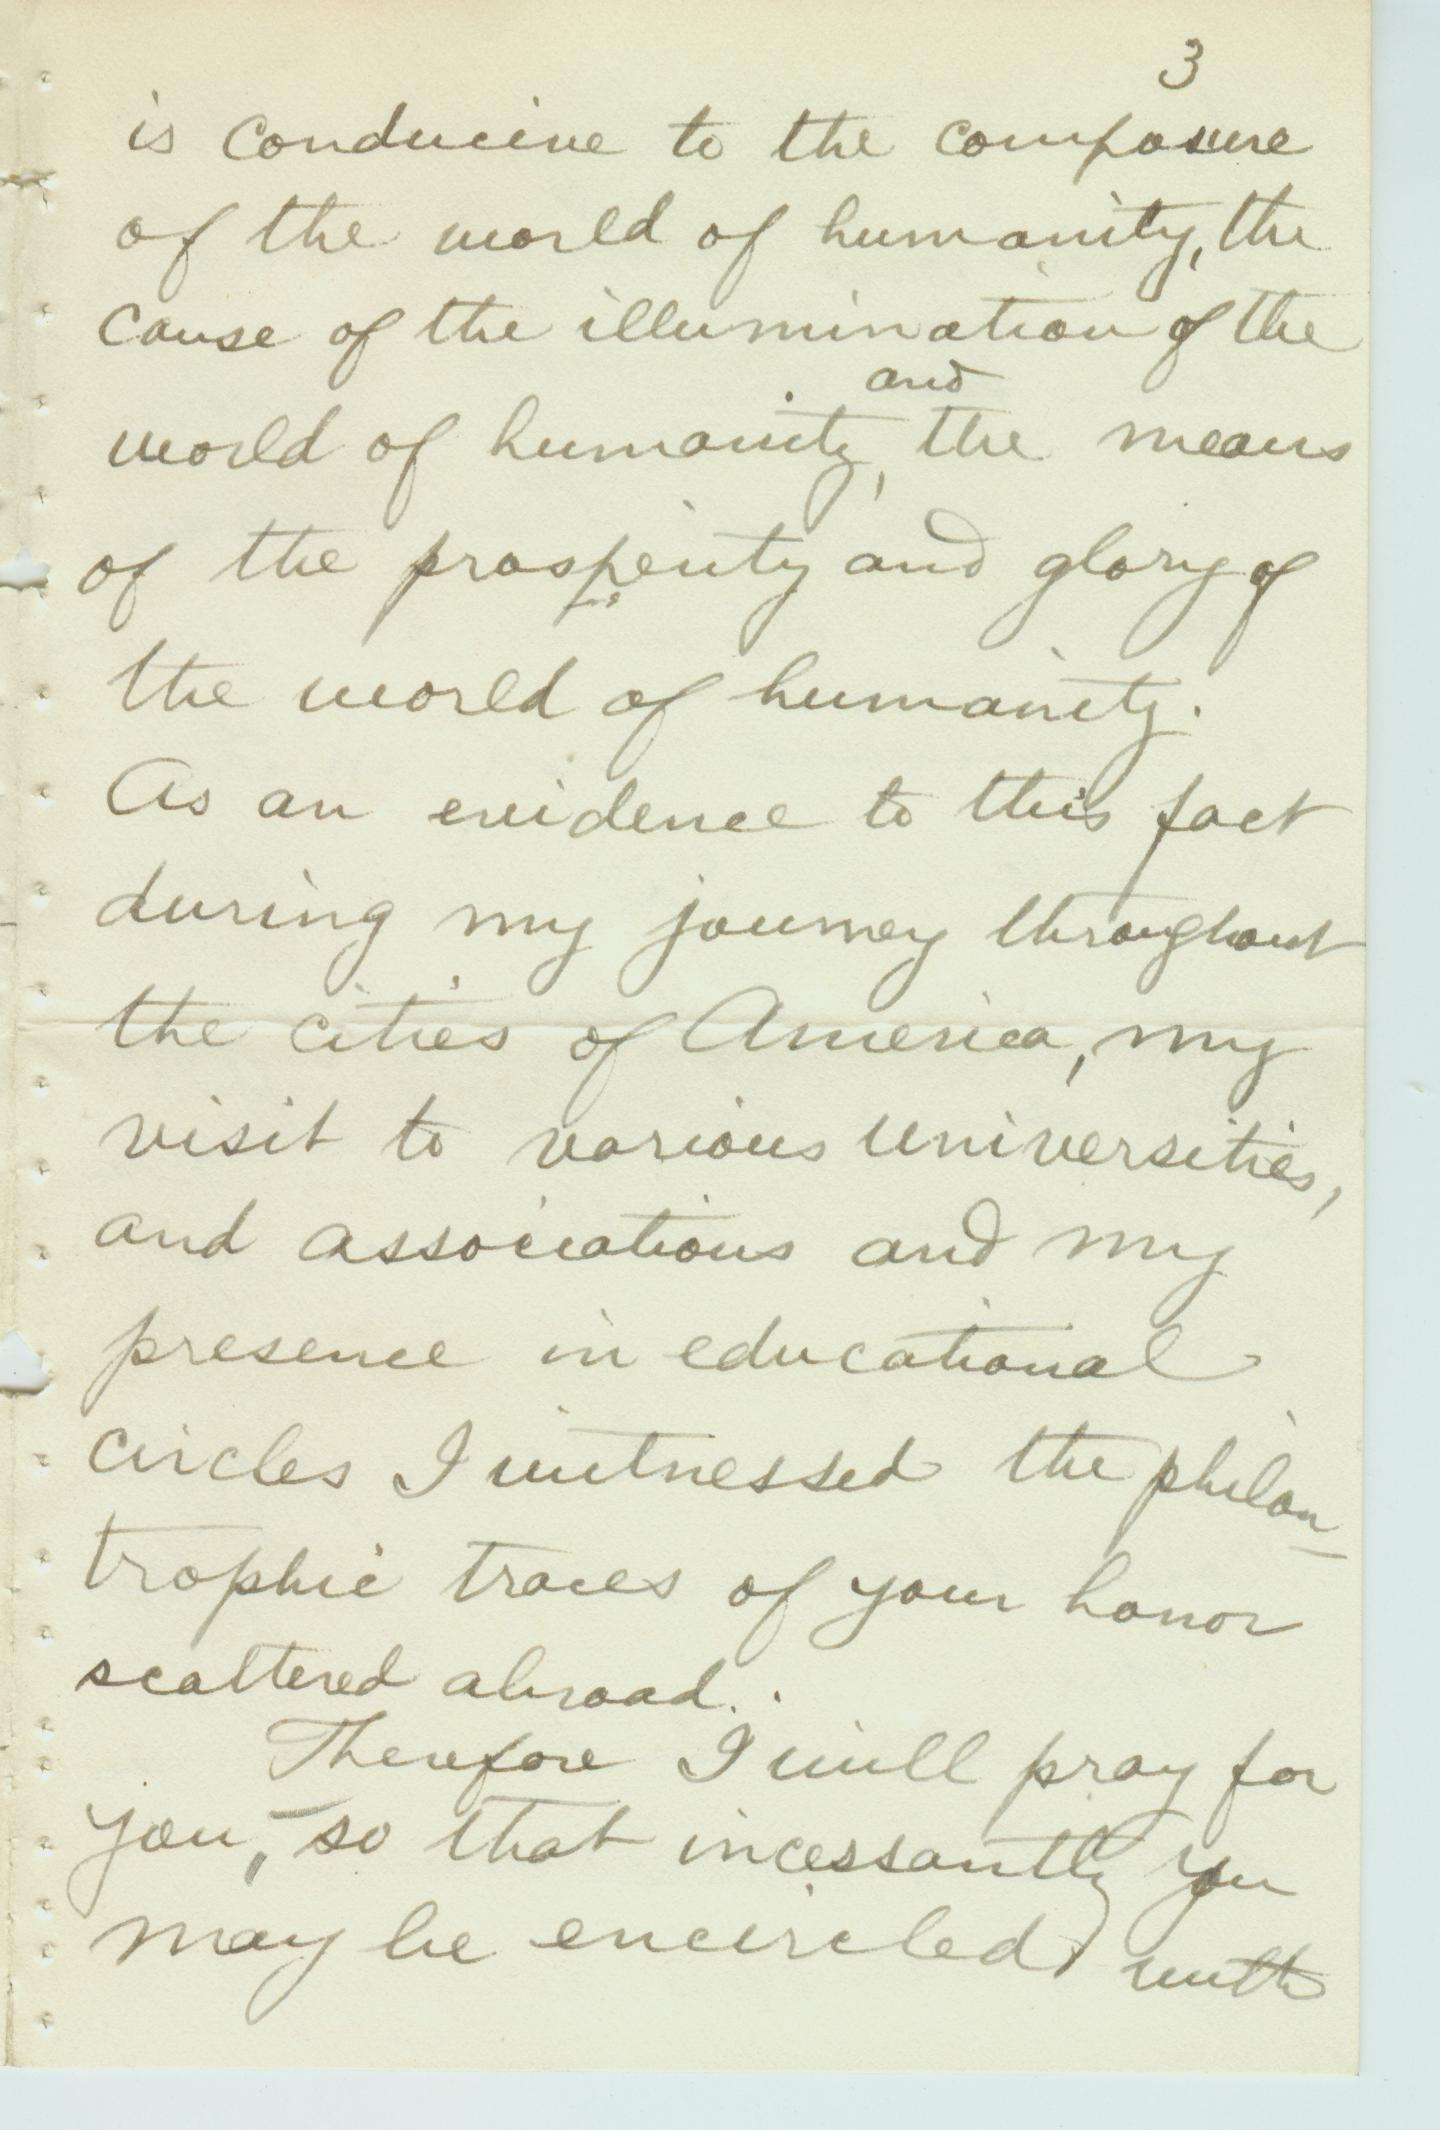 3
is conducive to the composure
of the world of humanity, the
cause of the illumination of the
and
world of humanity, the means
of the prosperity and glory of
the world of humanity.
As an evidence to this fact
during my journey throughout
the cities of America, my
visit to various universities,
and associations and my
presence in educational
circles I witnessed the philan-
trophic traces of your honor
scattered abroad.
Therefore I will pray for
you, so that incessantly you
may be encircled with